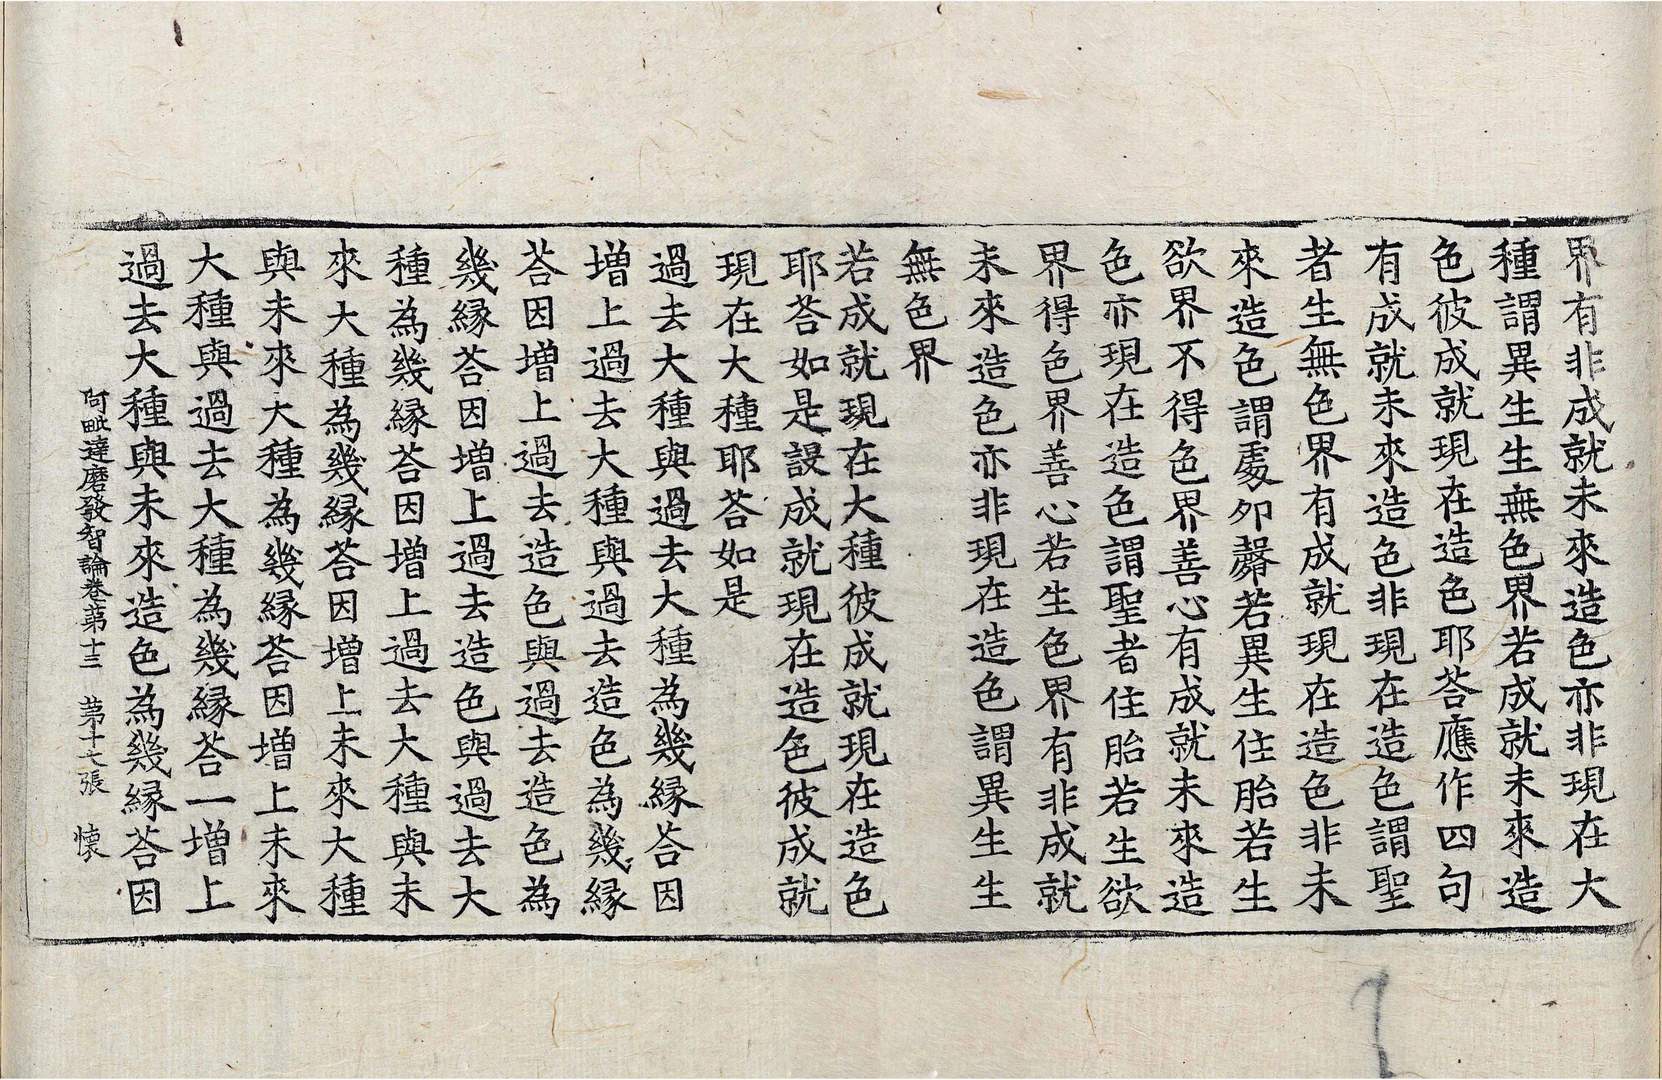 界有非成就未來造色亦非現在大
種謂異生生無色界若成就未來造
色彼成就現在造色耶荅應作四句
有成就未來造色非現在造色謂聖
者生無色界有成就現在造色非未
來造色謂處卵㲉若異生住胎若生
欲界不得色界善心有成就未來造
色亦現在造色謂聖者住胎若生欲
界得色界善心若生色界有非成就
未來造色亦非現在造色謂異生生
無色界
若成就現在大種彼成就現在造色
耶荅如是設成就現在造色彼成就
現在大種耶荅如是
過去大種與過去大種為幾緣荅因
增上過去大種與過去造色為幾緣
荅因增上過去造色與過去造色為
幾緣荅因增上過去造色與過去大
種為幾緣荅因增上過去大種與未
來大種為幾緣荅因增上未來大種
與未來大種為幾緣荅因增上未來
大種與過去大種為幾緣荅一增上
過去大種與未來造色為幾緣荅因
阿毗達磨發智論卷第十三 第十七張 懷